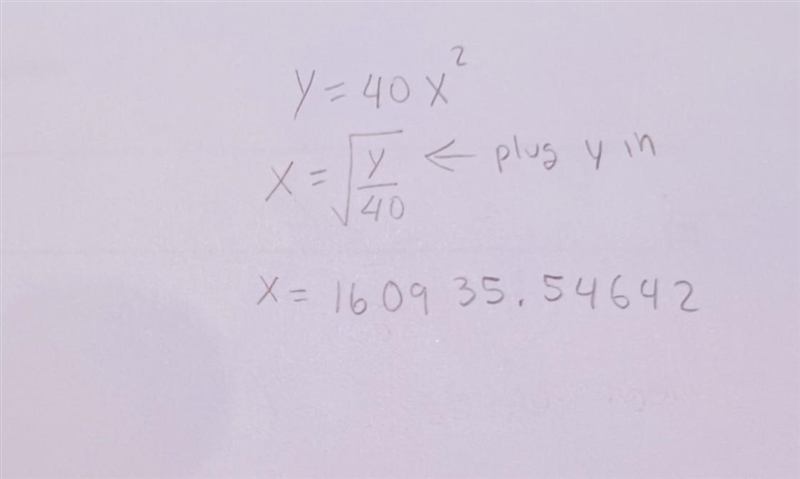 y = 40 x²
x = √(y/40) ← plug y in
x = 160935.54642